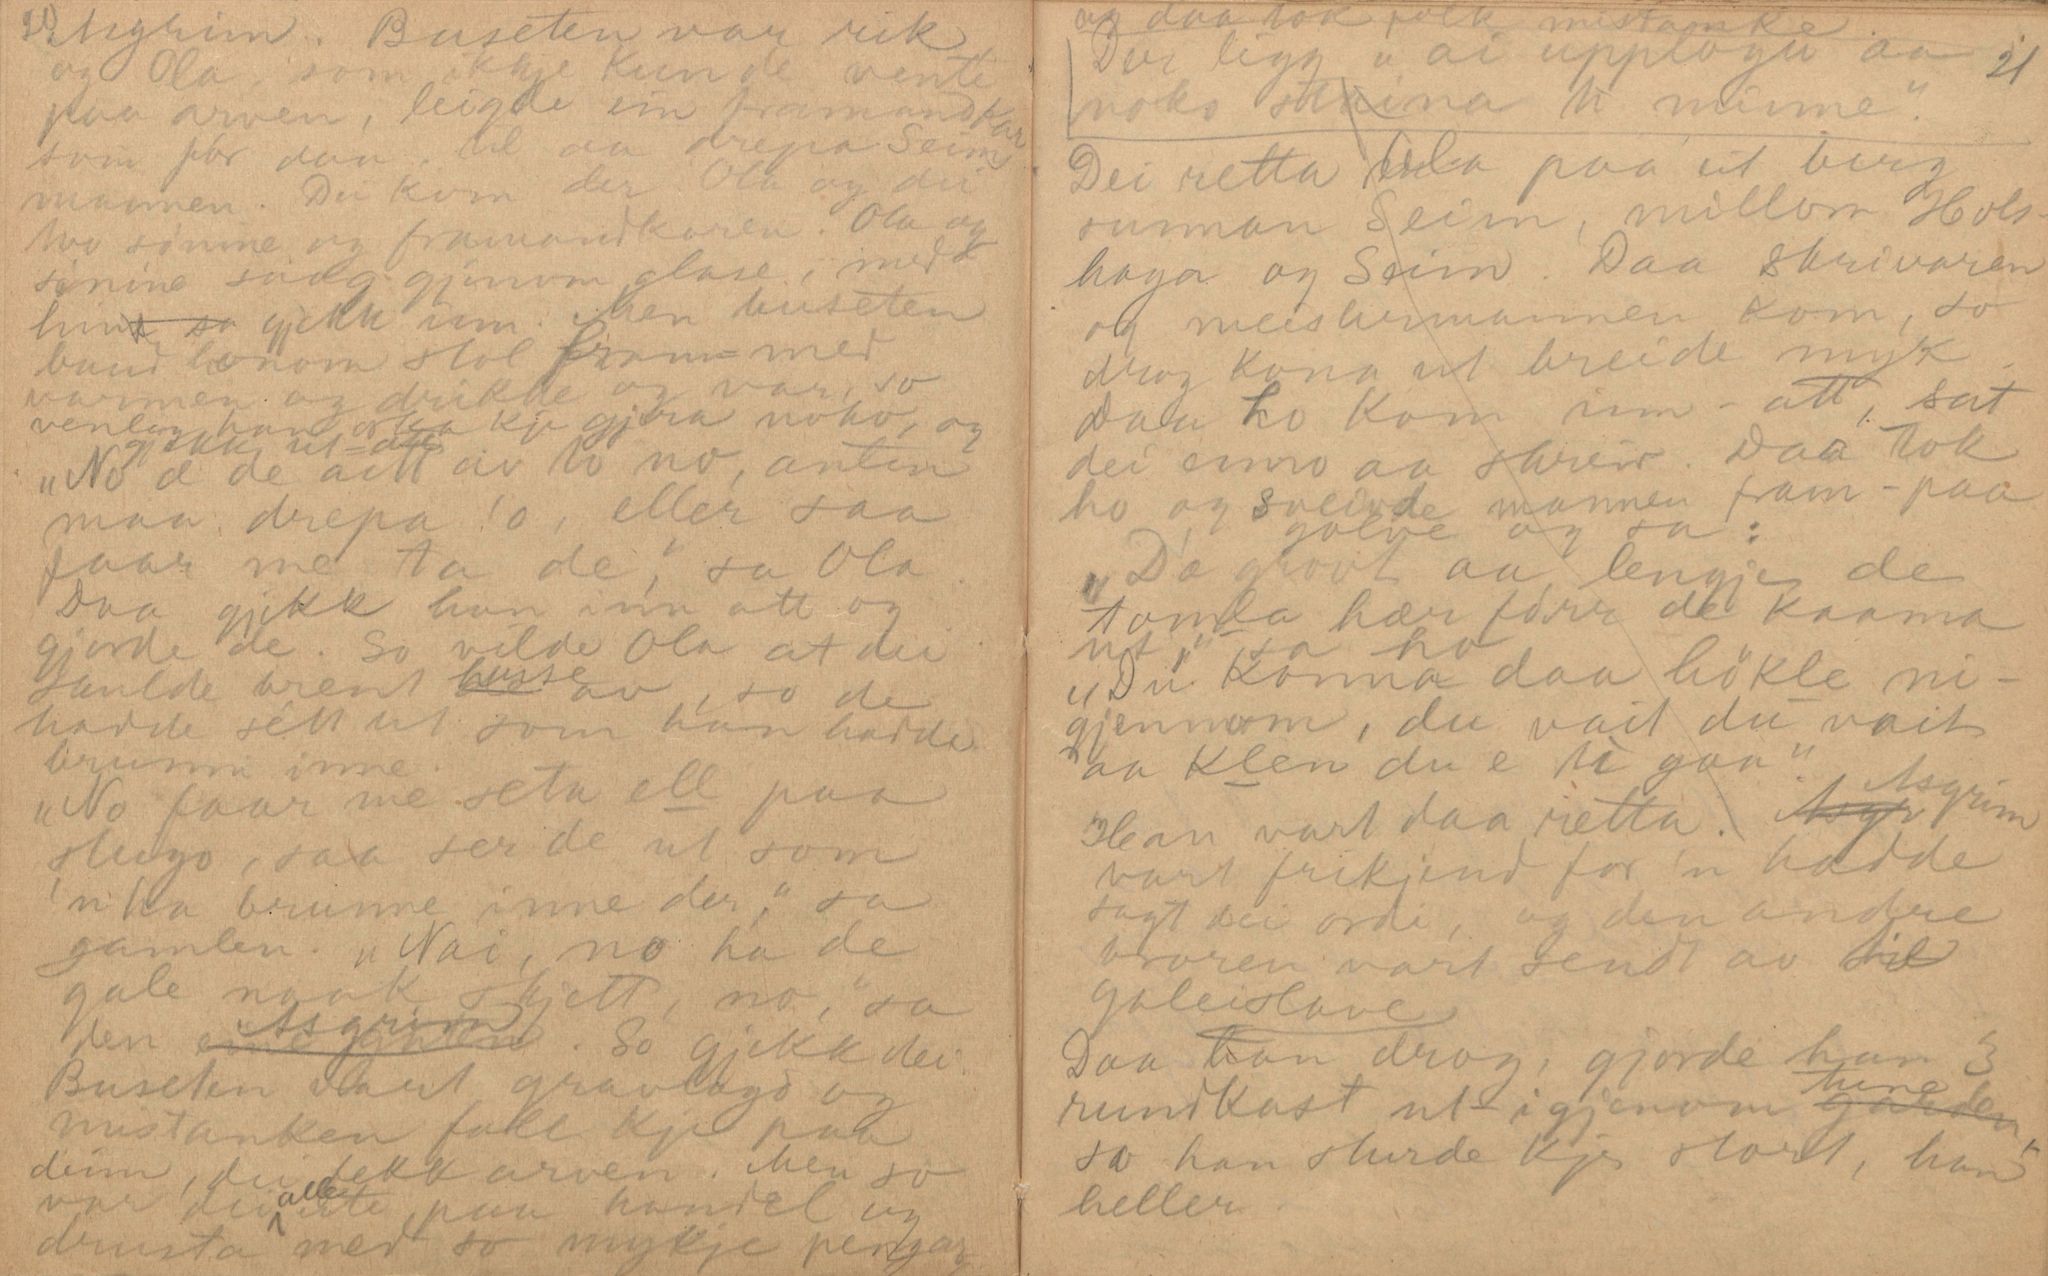 20
Asgrim. Buseten var rik
og Ola, som ikkje kunde vente
paa arven, leigde ein framandkar
som for daa, til aa drepa Seim
mannen. Dei kom der Ola og dei
two sønine og framandkaren. Ola og
sønine saag gjenom glase, medt
hin so gjekk inn. Men buseten
baud honom stol fram-med
varmen og drikke og var so
venleg han orka kje gjera noko, og
gjekk ut-att
"No æ de aitt av to no, anten
maa drepa 'o, eller saa
faar me ta de," sa Ola.
Daa gjekk han inn att og
gjorde de. So vilde Ola at dei
skulde brent husse av, so de
hadde sétt ut som han hadde
brunni inne.
"No faar me seta ell paa
stugo, saa ser de ut som
'n ha brunne inne der," sa
gamlen. "Nai, no ha de
gale naak skjett, no," sa
den Asgrim. So gjekk dei.
Buseten vart gravlagd og
mistanken fall kje paa
deim, dei fekk arven. Men so
var dei alle ute paa handel og
drusta med so mykje pengar
og daa tok folk mistanke.
21
"Der ligg u ai upploga aa
noko skina ti minne".
Dei retta Ola paa et berg
sunnan Seim, millom Hols-
haga og Seim. Daa skrivaren
og meistermannen kom, so
drog kona ut breide myk.
Daa ho kom inn-att, sat
dei enno aa skreiv. Daa tok
ho og sveivde mannen fram-paa
golve og sa:
"Dæ grovt aa lengje de
tomla hær førr de kaama
ut," sa ho
"Du konna daa hökle ni-
gjennom, du vait du vait
aa klen du e ti gaa".
Han vart daa retta. Asgrim
vart frikjend for 'n hadde
sagt dei ordi, og den andre
broren vart sendt av til
galeislave
Daa han drog, gjorde han 3
rundkast ut-igjenom tune
so han sturde kje stort, han
heller.